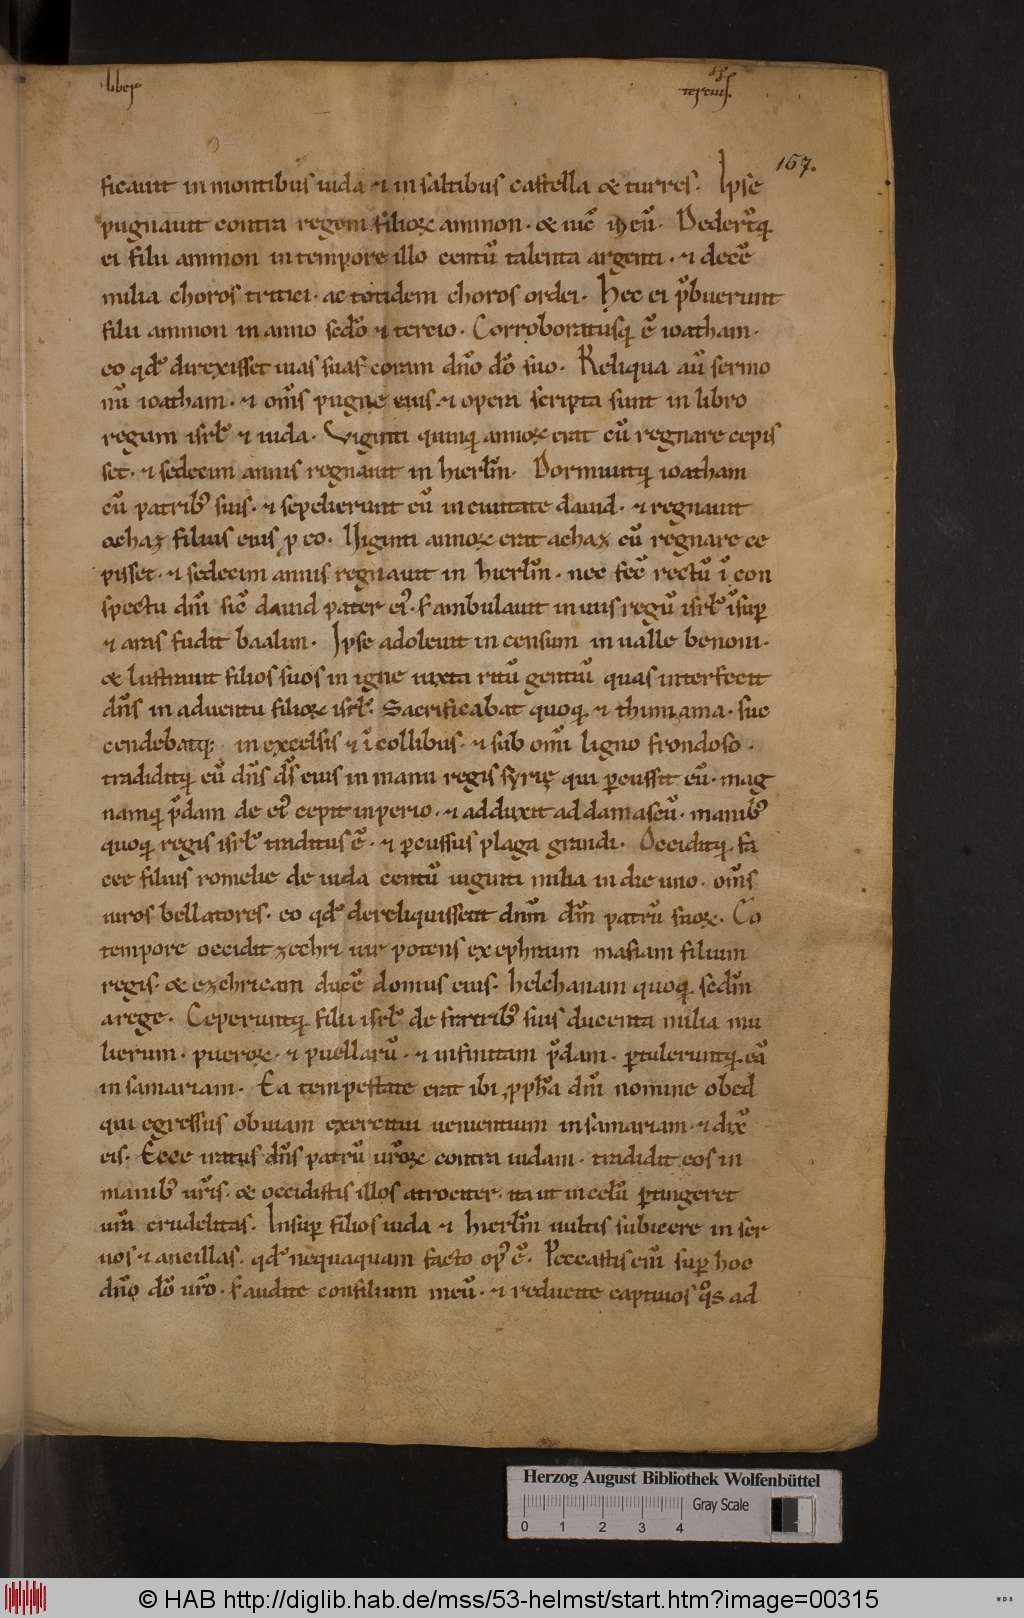 liber
tercius.
167.
ficauit in montibus iuda ⁊ in saltibus castella & turres. Ipse
pugnauit contra regem filioꝝ ammon. & uic̄ eū. Dederūtq;
ei filii ammon in tempore illo centū talenta argenti. ⁊ decē
milia choros tritici. ac totidem choros ordei. Hec ei p̄buerunt
filii ammon in anno sc̄do ⁊ tercio. Corroboratusq; ē ioatham.
eo qđ direxisset uias suas coram dn̄o dō suo. Reliqua aū sermo
nū ioatham. ⁊ om̄s pugne eius. ⁊ opera scripta sunt in libro
regum isrł ⁊ iuda. Viginti quinq; annoꝝ erat cū regnare cepis
set. ⁊ sedecim annis regnauit in hierłm. Dormiuitq; ioatham
cū patrib; suis. ⁊ sepelierunt eū in ciuitate dauid. ⁊ regnauit
achaz filius eius p eo. Uiginti annoꝝ erat achaz cū regnare ce
pisset. ⁊ sedecim annis regnauit in hierłm. nec fec̄ rectū ī con
spectu dn̄i sic̄ dauid pater ei᷒. s; ambulauit in uiis regū isrł īsuꝑ
⁊ aras fudit baalim. Ipse adoleuit incensum in ualle benoni.
& lustrauit filios suos in igne iuxta ritū gentiū quas interfecit
dn̄s in aduentu filioꝝ isrł. Sacrificabat quoq; ⁊ thimiama. suc
cendebatq; in excelsis ⁊ ī collibus. ⁊ sub om̄i ligno frondoso.
tradiditq; eū dn̄s ds̄ eius in manu regis syrię qui ꝑcussit eū. mag
namq; p̄dam de ei᷒ cepit inperio. ⁊ adduxit ad damascū. manib;
quoq; regis isrł traditus ē. ⁊ ꝑcussus plaga grandi. Occiditq; fa
cee filius romelie de iuda centū uiginti milia in die uno. om̄s
uiros bellatores. eo qđ dereliquissent dnm̄ dm̄ patrū suoꝝ. Eo
tempore occidit zechri uir potens ex ephraim masiam filium
regis. & ezchricam ducē domus eius. helchanam quoq; sedm̄
a rege. Ceperuntq; filii isrł de fratrib; suis ducenta milia mu
lierum. pueroꝝ. ⁊ puellarū. ⁊ infinitam p̄dam. ꝑtuleruntq; eā
in samariam. Ea tempestate erat ibi ꝓph̄a dn̄i nomine obed
qui egressus obuiam exercitui uenientium in samariam. ⁊ dix̄
eis. Ecce iratus dn̄s patrū ur̄oꝝ contra iudam. tradidit eos in
manib; ur̄is. & occidistis illos atrociter. ita ut in celū ꝑtingeret
ur̄a crudelitas. Insuꝑ filios iuda ⁊ hierłm uultis subicere in ser
uos ⁊ ancillas. qđ nequaquam facto op᷒ ē. Peccastis em̄ suꝑ hoc
dn̄o dō ur̄o. s; audite consilium meū. ⁊ reducite captiuos q̊s ad
Herzog August Bibliothek Wolfenbüttel
Gray Scale
0 1 2 3 4
© HAB http://diglib.hab.de/mss/53-helmst/start.htm?image=00315